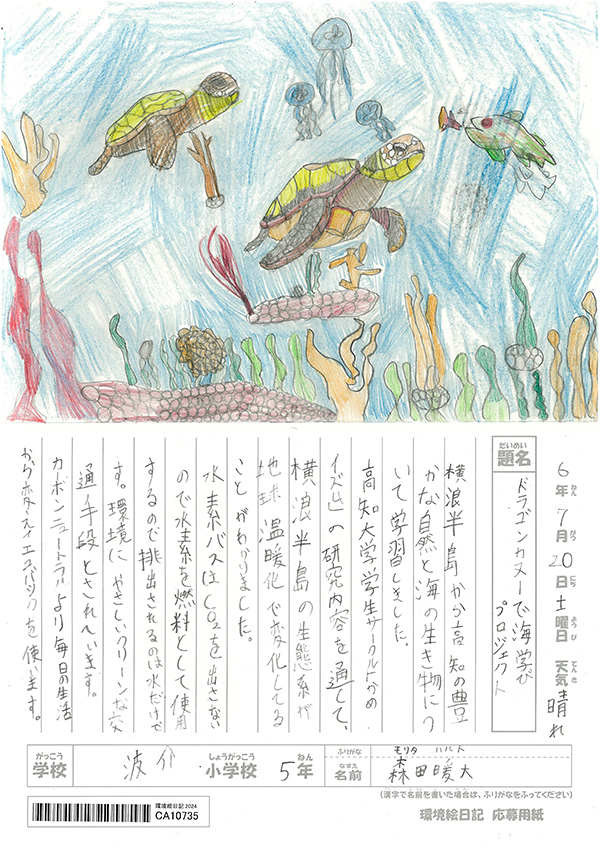 6年7月20日土曜日 天気 晴れ
ねん がつ にち ようび てんき
だいめい
題名
ドラゴンカヌーで海学び
プロジェクト
横浪半島から高知の豊
かな自然と海の生き物につ
いて学習しきました。
高知大学学生サークルトかめ
イズム」の研究内容を通して、
横浪半島の生態系が
地球温暖化で変化してる
ことがわかりました。
水素バスはCO2を出さない
ので水素を燃料として使用
するので排出されるのは水だけで
す。環境にやさしいクリーンな交
通手段とされています。
カーボンニュートラルより毎日の生活
から変えエコバックを使います。
がっこう
学校
波介
しょうがっこう
小学校
5年
ねん
ふりがな
モリタ ハルト
なまえ
名前
森田暖大
(漢字で名前を書いた場合は、ふりがなをふってください)
環境絵日記2024
CA10735
環境絵日記 応募用紙